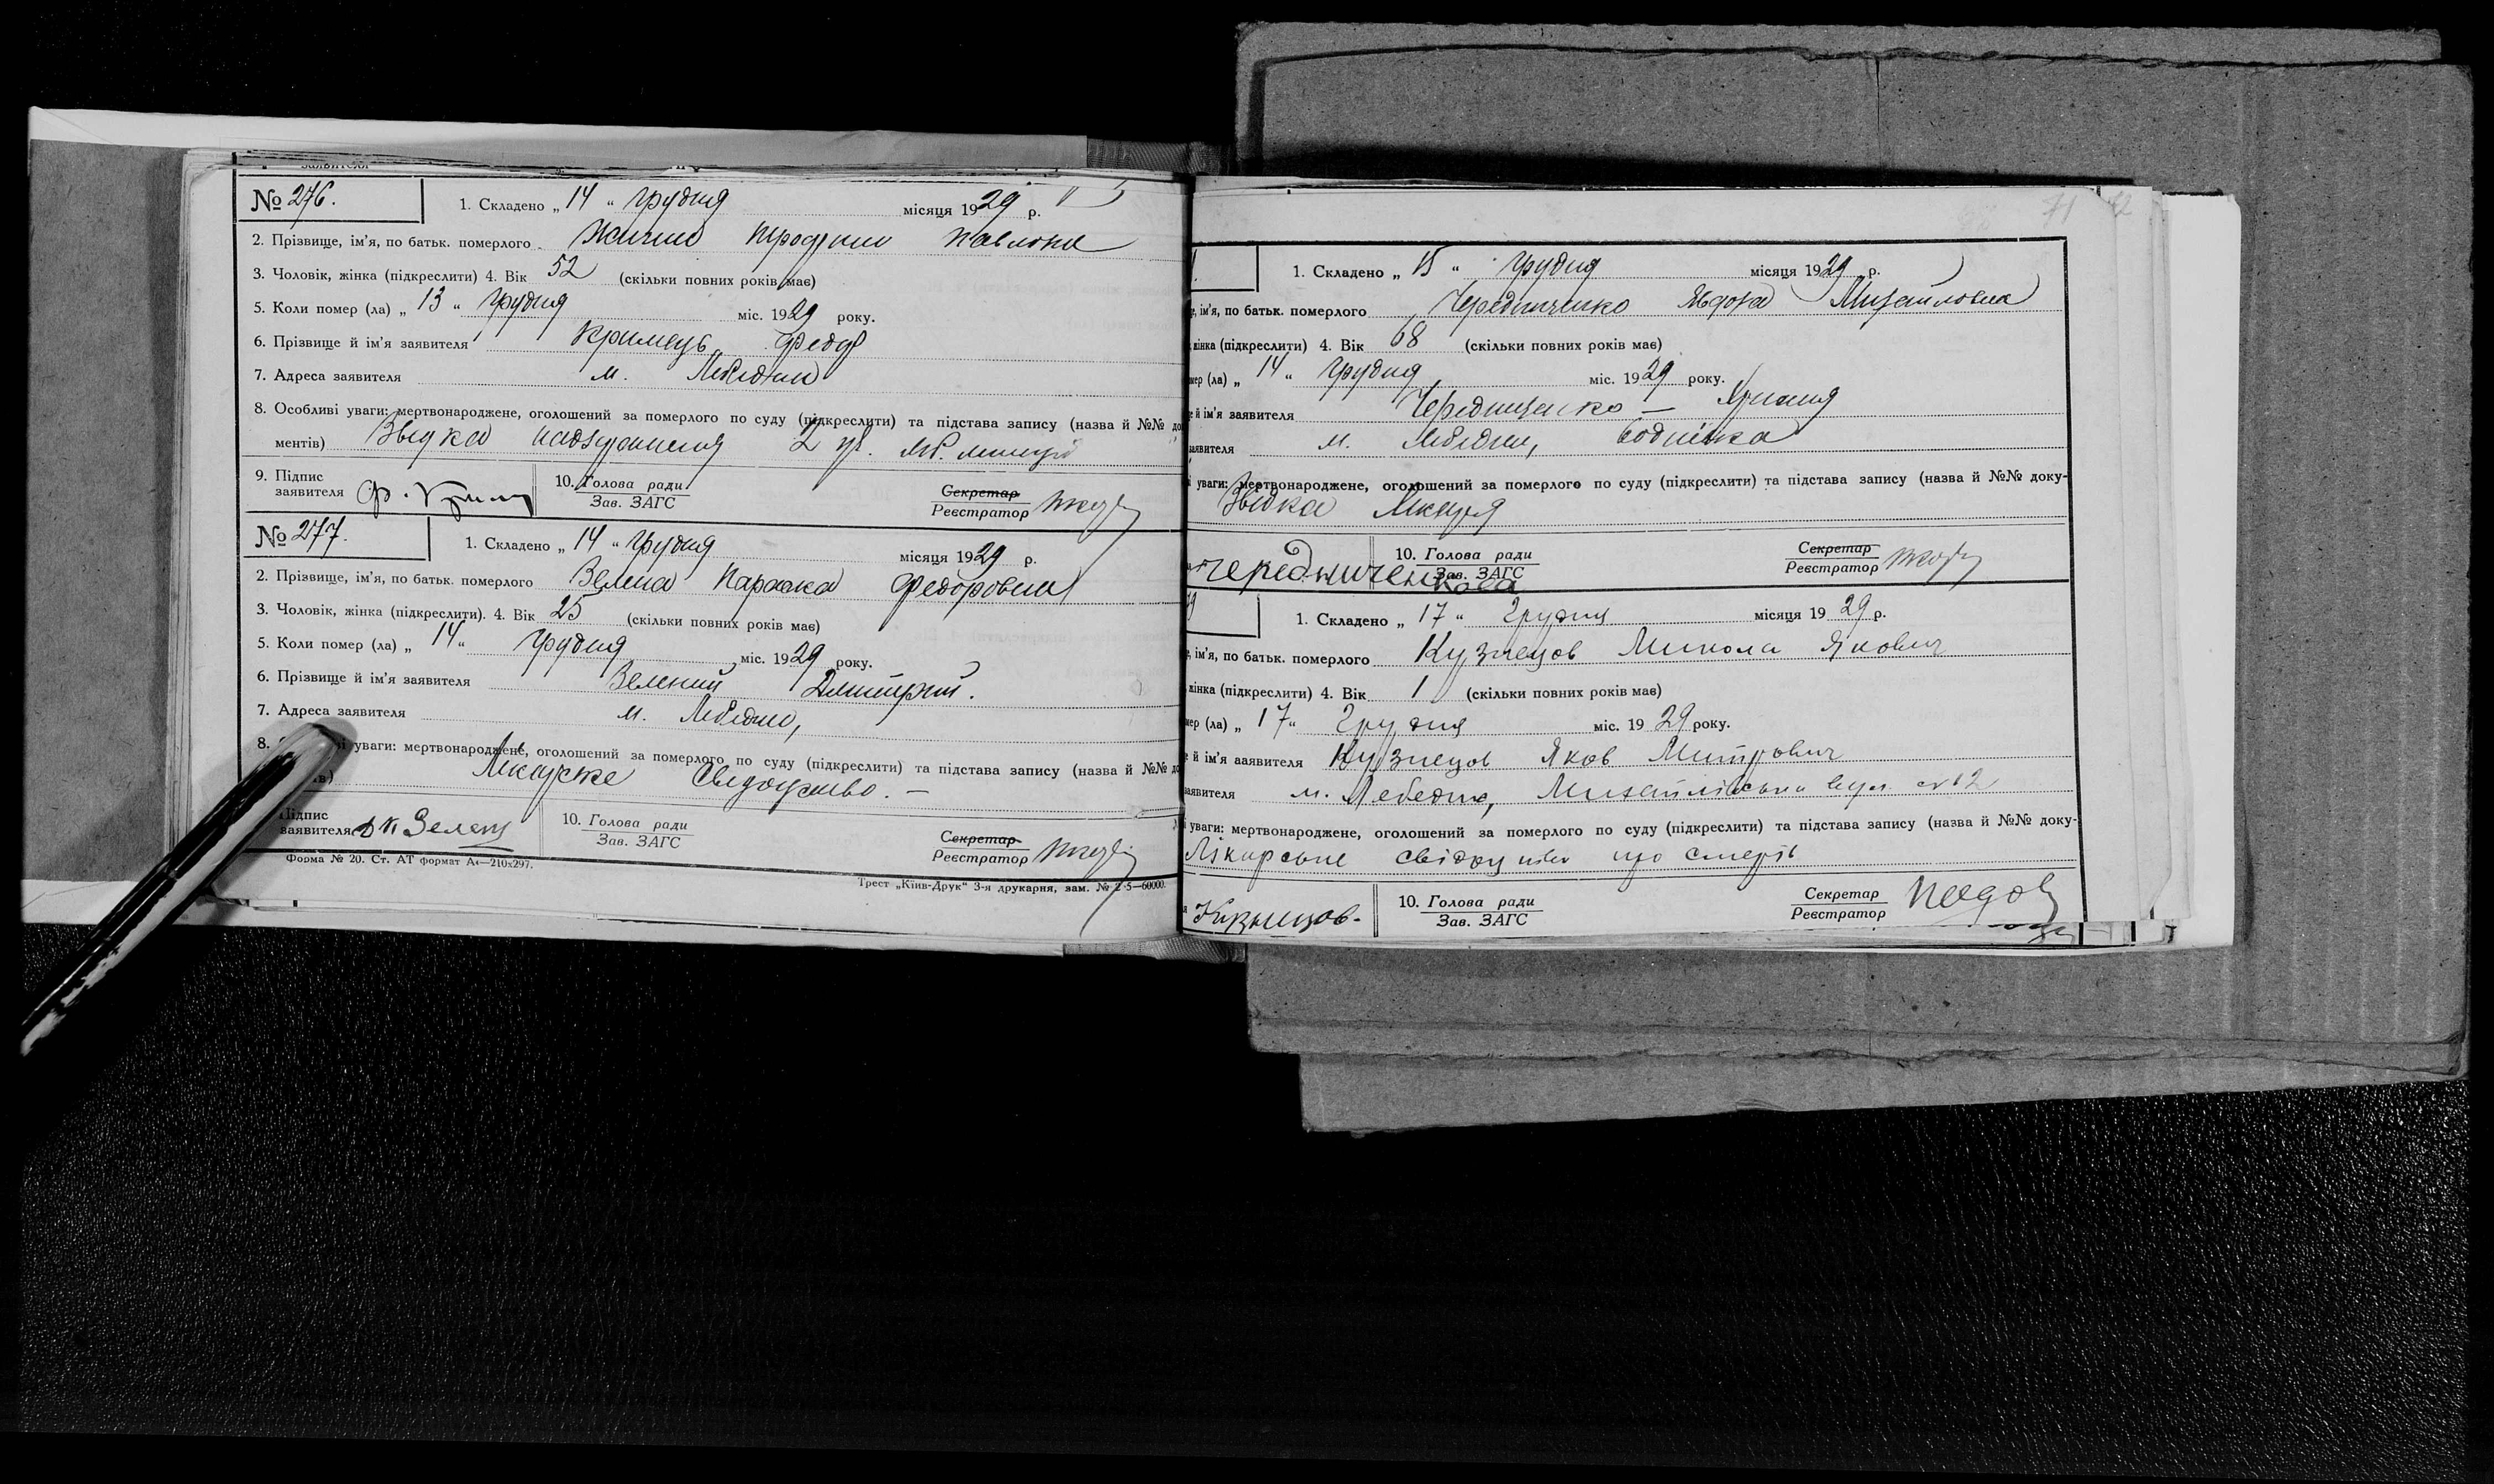 заявителя
№ 276.
1. Складено „ 14 “ грудня місяця 1929 р.
2. Прізвище, ім'я, по батьк. померлого
3. Чоловік, жінка (підкреслити) 4. Вік 52 (скільки повних років має)
5. Коли помер (ла) „ 13 “ грудня міс. 1929 року.
6. Прізвище й ім'я заявителя Кримець Федір
7. Адреса заявителя м. Лебедин
8. Особливі уваги: мертвонароджене, оголошений за померлого по суду (підкреслити) та підстава запису (назва й №№ до
ментів) Звідка 2
9. Підпис заявителя Ф.
10. Голова ради Зав. ЗАГС
Секретар Реєстратор
№ 277.
1. Складено „ 14 “ грудня місяця 1929 р.
2. Прізвище, ім'я, по батьк. померлого Зелена Параска Федоровна
3. Чоловік, жінка (підкреслити). 4. Вік 25 (скільки повних років має)
5. Коли помер (ла) „ 14 “ грудня міс. 1929 року.
6. Прізвище й ім'я заявителя Зелений Дмитрий.
7. Адреса заявителя м. Лебедин,
8. уваги: мертвонароджене, оголошений за померлого по суду (підкреслити) та підстава запису (назва й №№ до
ів) Лікарске свідоцтво. —
Підпис заявителя
10. Голова ради Зав. ЗАГС
Секретар Реєстратор
Форма № 20. Ст. АТ формат А4—210x297.
Трест „Київ-Друк“ 3-я друкарня, зам. № 2-5—60000.
71
1. Складено „ 15 “ грудня місяця 1929 р.
е, ім'я, по батьк. померлого Чередниченко Явдоха Михайловна
жінка (підкреслити) 4. Вік 68 (скільки повних років має)
мер (ла) „ 14 “ грудня міс. 1929 року.
е й ім'я заявителя Чередниченко —
заявителя м. Лебедин,
уваги: мертвонароджене, оголошений за померлого по суду (підкреслити) та підстава запису (назва й №№ доку-
Звідка Лікаря
чередниченкова
10. Голова ради Зав. ЗАГС
Секретар Реєстратор
1. Складено „ 17 “ Грудня місяця 1929 р.
е, ім'я, по батьк. померлого Кузнецов Микола Якович
жінка (підкреслити) 4. Вік 1 (скільки повних років має)
мер (ла) „ 17 “ Грудня міс. 1929 року.
е й ім'я заявителя Кузнецов Яков Митрович
заявителя м. Лебедин, Михайлівська вул. №12
уваги: мертвонароджене, оголошений за померлого по суду (підкреслити) та підстава запису (назва й №№ доку-
Лікарське свідоцтво про смерть
Кузнецов.
10. Голова ради Зав. ЗАГС
Секретар Реєстратор